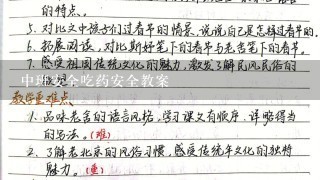 的特点。
5. 对比文中孩子们过春节的情景,说说自己是怎样过春节的。
6. 拓展阅读,对比斯妤笔下的春节与老舍笔下的春节。
7. 感受祖国传统文化的魅力,激发了解民风民俗的
中班安全吃药安全教案
教学重难点
1. 品味老舍的语言风格,学习课文有顺序、详略得当
的写法。(难)
2. 了解老北京的风俗习惯,感受传统年文化的独特
魅力。(重)